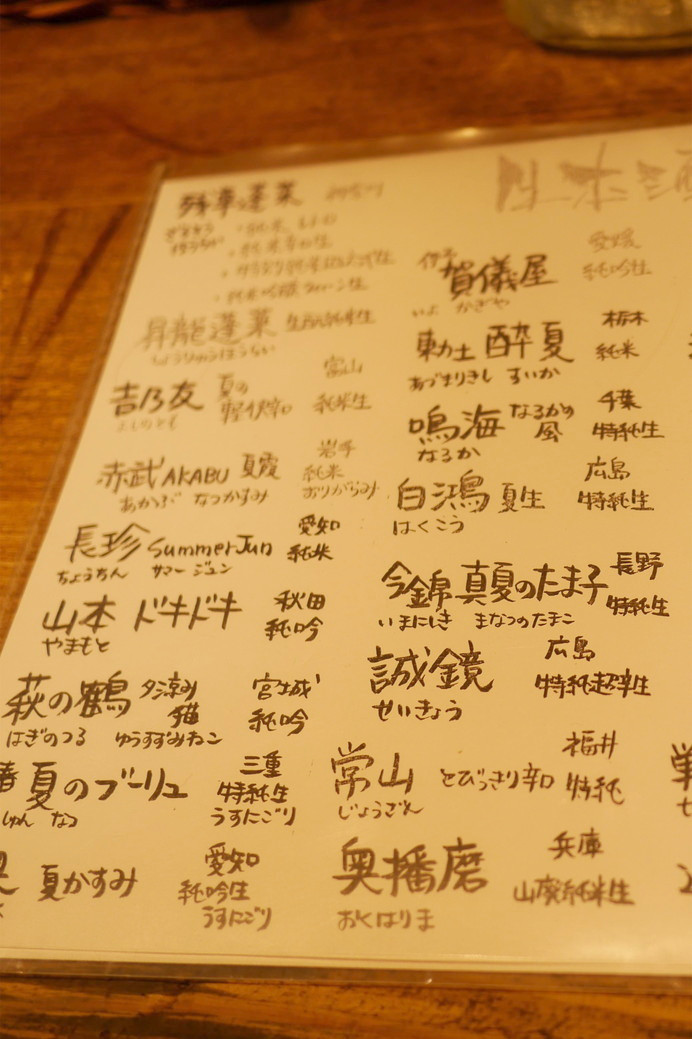 日本酒
蓬莱
昇龍蓬莱 生酛純米生
しょうりゅうほうらい
吉乃友 夏の 富山
軽快辛口 純米生
よしのとも
赤武 AKABU 夏霞 岩手
純米
あかぶ なつがすみ おりがらみ
長珍 Summer Jun 愛知
純米
ちょうちん サマー ジュン
山本 ドキドキ 秋田
純吟
やまもと
萩の鶴 夕涼み 宮城
猫 純吟
はぎのつる ゆうすずみねこ
夏のブーリュ 三重
特純生
じゅん なつ うすにごり
夏かすみ 愛知
純吟生
うすにごり
伊予 賀儀屋 愛媛
純吟生
いよ かぎや
東力士 酔夏 栃木
純米
あづまりきし すいか
鳴海 なるかの 千葉
風 特純生
なるか
白鴻 夏生 広島
特純生
はくこう
今錦 真夏のたま子 長野
特純生
いまにしき まなつのたまこ
誠鏡 広島
特純超辛生
せいきょう
常山 とびっきり辛口 福井
特純
じょうざん
奥播磨 兵庫
山廃純米生
おくはりま